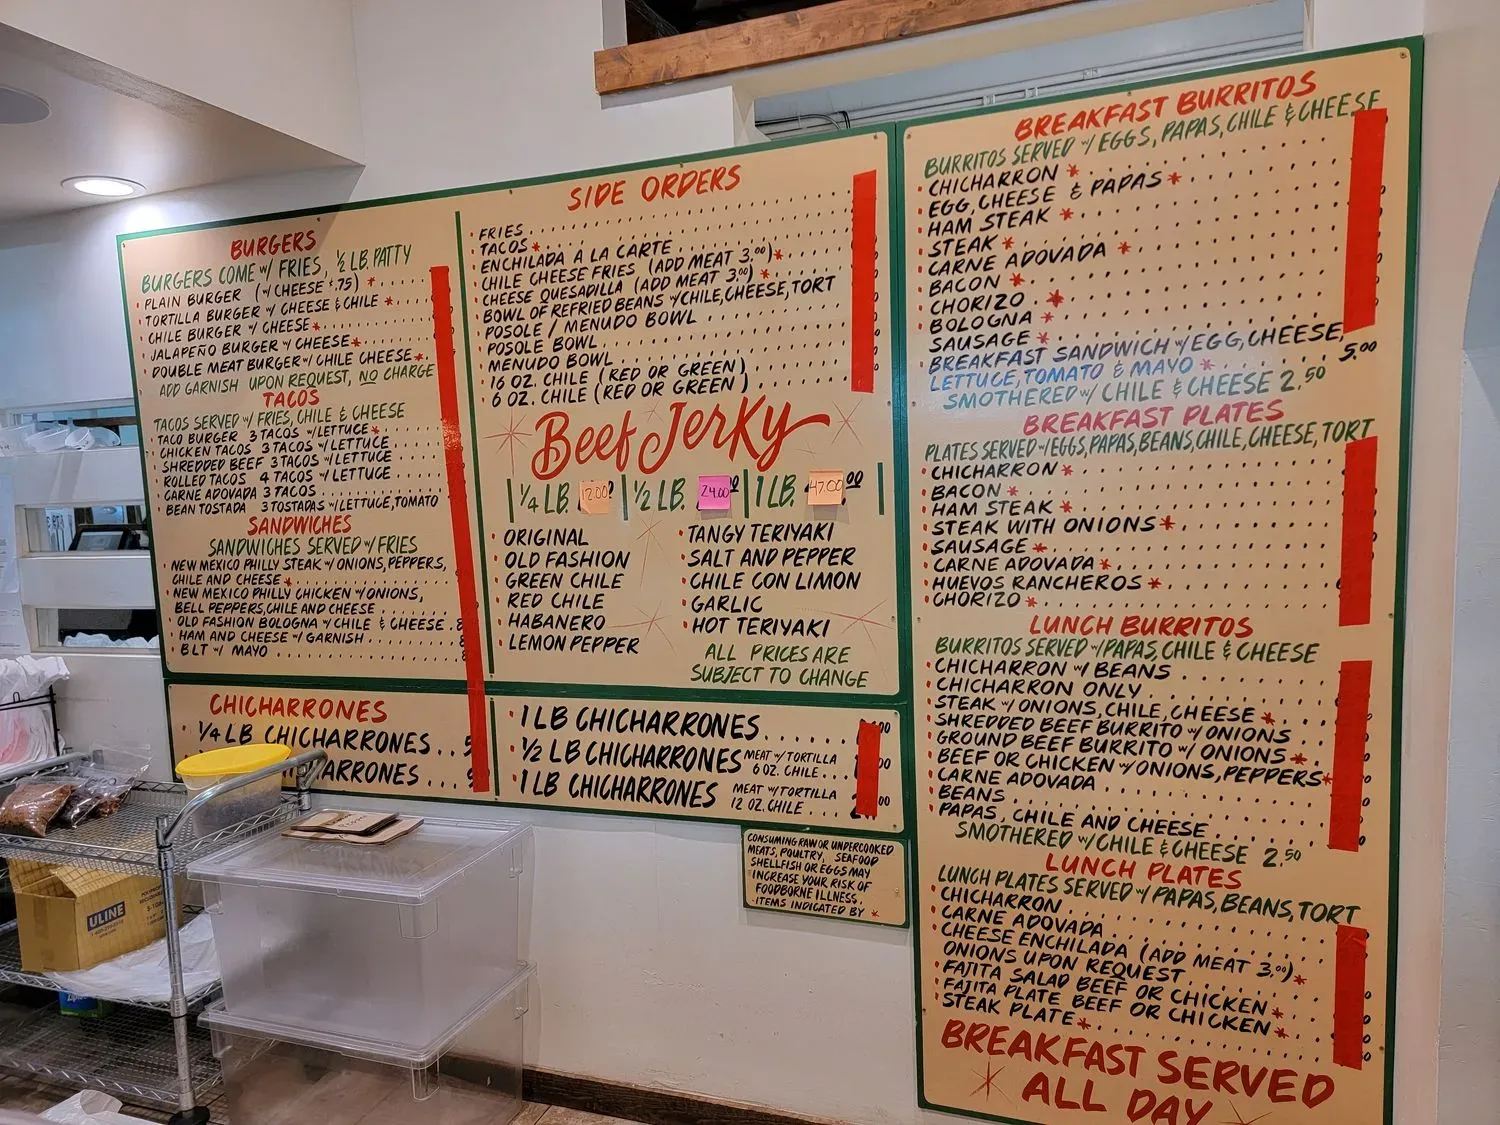 BURGERS
BURGERS COME W/ FRIES, 1/2 LB. PATTY
· PLAIN BURGER (W/ CHEESE $.75) *
· TORTILLA BURGER W/ CHEESE & CHILE *
· CHILE BURGER W/ CHEESE *
· JALAPEÑO BURGER W/ CHEESE *
· DOUBLE MEAT BURGER W/ CHILE CHEESE *
ADD GARNISH UPON REQUEST, NO CHARGE
TACOS
TACOS SERVED W/ FRIES, CHILE & CHEESE
· TACO BURGER 3 TACOS W/ LETTUCE *
· CHICKEN TACOS 3 TACOS W/ LETTUCE
· SHREDDED BEEF 3 TACOS W/ LETTUCE
· ROLLED TACOS 4 TACOS W/ LETTUCE
· CARNE ADOVADA 3 TACOS
· BEAN TOSTADA 3 TOSTADAS W/ LETTUCE, TOMATO
SANDWICHES
SANDWICHES SERVED W/ FRIES
· NEW MEXICO PHILLY STEAK W/ ONIONS, PEPPERS,
CHILE AND CHEESE *
· NEW MEXICO PHILLY CHICKEN W/ ONIONS,
BELL PEPPERS, CHILE AND CHEESE
· OLD FASHION BOLOGNA W/ CHILE & CHEESE
· HAM AND CHEESE W/ GARNISH
· BLT W/ MAYO
CHICHARRONES
1/4 LB CHICHARRONES . . . 5
ARRONES
SIDE ORDERS
· FRIES
· TACOS *
· ENCHILADA A LA CARTE
· CHILE CHEESE FRIES (ADD MEAT 3.00) *
· CHEESE QUESADILLA (ADD MEAT 3.00) *
· BOWL OF REFRIED BEANS W/ CHILE, CHEESE, TORT
· POSOLE / MENUDO BOWL
· POSOLE BOWL
· MENUDO BOWL
· 16 OZ. CHILE (RED OR GREEN)
· 6 OZ. CHILE (RED OR GREEN)
Beef Jerky
1/4 LB. 12.00 | 1/2 LB. 24.00 | 1 LB. 47.00
· ORIGINAL
· OLD FASHION
· GREEN CHILE
· RED CHILE
· HABANERO
· LEMON PEPPER
· TANGY TERIYAKI
· SALT AND PEPPER
· CHILE CON LIMON
· GARLIC
· HOT TERIYAKI
ALL PRICES ARE
SUBJECT TO CHANGE
· 1 LB CHICHARRONES
· 1/2 LB CHICHARRONES MEAT W/ TORTILLA
6 OZ. CHILE
· 1 LB CHICHARRONES MEAT W/ TORTILLA
12 OZ. CHILE
CONSUMING RAW OR UNDERCOOKED
MEATS, POULTRY, SEAFOOD
SHELLFISH OR EGGS MAY
INCREASE YOUR RISK OF
FOODBORNE ILLNESS.
· ITEMS INDICATED BY *
BREAKFAST BURRITOS
BURRITOS SERVED W/ EGGS, PAPAS, CHILE & CHEESE
· CHICHARRON *
· EGG, CHEESE & PAPAS *
· HAM STEAK *
· STEAK *
· CARNE ADOVADA *
· BACON *
· CHORIZO *
· BOLOGNA *
· SAUSAGE *
· BREAKFAST SANDWICH W/ EGG, CHEESE,
LETTUCE, TOMATO & MAYO * 5.00
SMOTHERED W/ CHILE & CHEESE 2.50
BREAKFAST PLATES
PLATES SERVED W/ EGGS, PAPAS, BEANS, CHILE, CHEESE, TORT
· CHICHARRON *
· BACON *
· HAM STEAK *
· STEAK WITH ONIONS *
· SAUSAGE *
· CARNE ADOVADA *
· HUEVOS RANCHEROS *
· CHORIZO *
LUNCH BURRITOS
BURRITOS SERVED W/ PAPAS, CHILE & CHEESE
· CHICHARRON W/ BEANS
· CHICHARRON ONLY
· STEAK W/ ONIONS, CHILE, CHEESE *
· SHREDDED BEEF BURRITO W/ ONIONS
· GROUND BEEF BURRITO W/ ONIONS *
· BEEF OR CHICKEN W/ ONIONS, PEPPERS *
· CARNE ADOVADA
· BEANS
· PAPAS, CHILE AND CHEESE
SMOTHERED W/ CHILE & CHEESE 2.50
LUNCH PLATES
LUNCH PLATES SERVED W/ PAPAS, BEANS, TORT
· CHICHARRON
· CARNE ADOVADA
· CHEESE ENCHILADA (ADD MEAT 3.00) *
ONIONS UPON REQUEST
· FAJITA SALAD BEEF OR CHICKEN *
· FAJITA PLATE BEEF OR CHICKEN *
· STEAK PLATE *
BREAKFAST SERVED
ALL DAY
ULINE